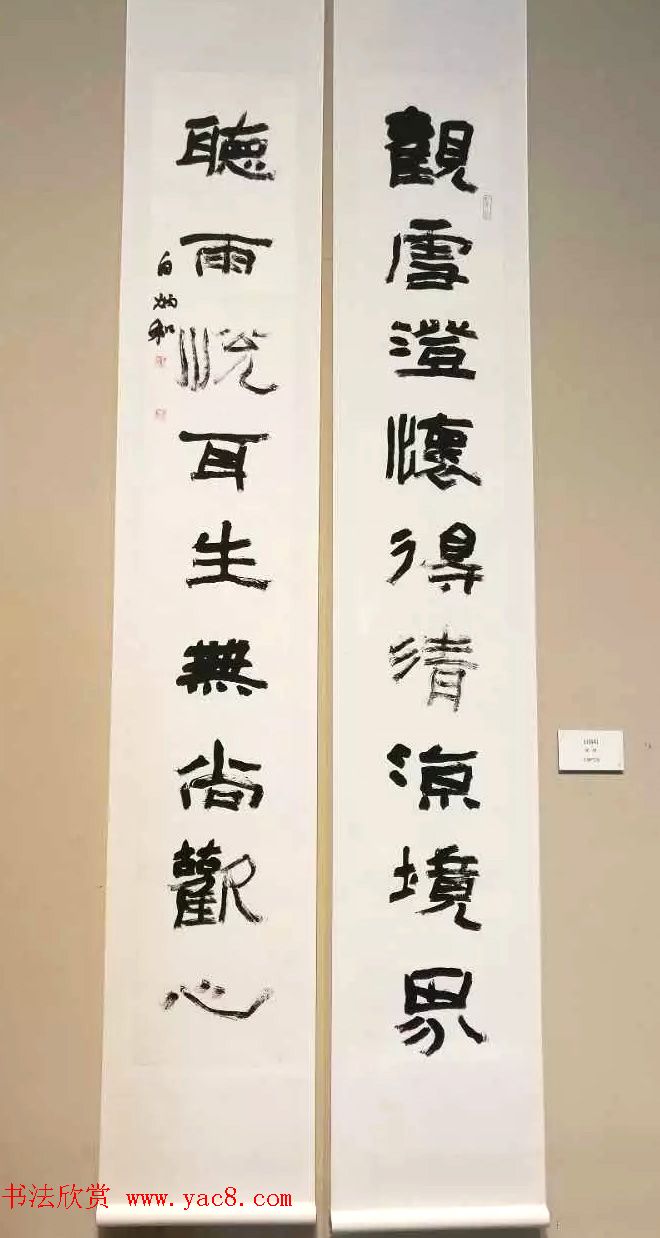 觀雪澄懷得清涼境界
聽雨悦耳生無尚歡心
白炳和
书法欣赏 www.yac8.com